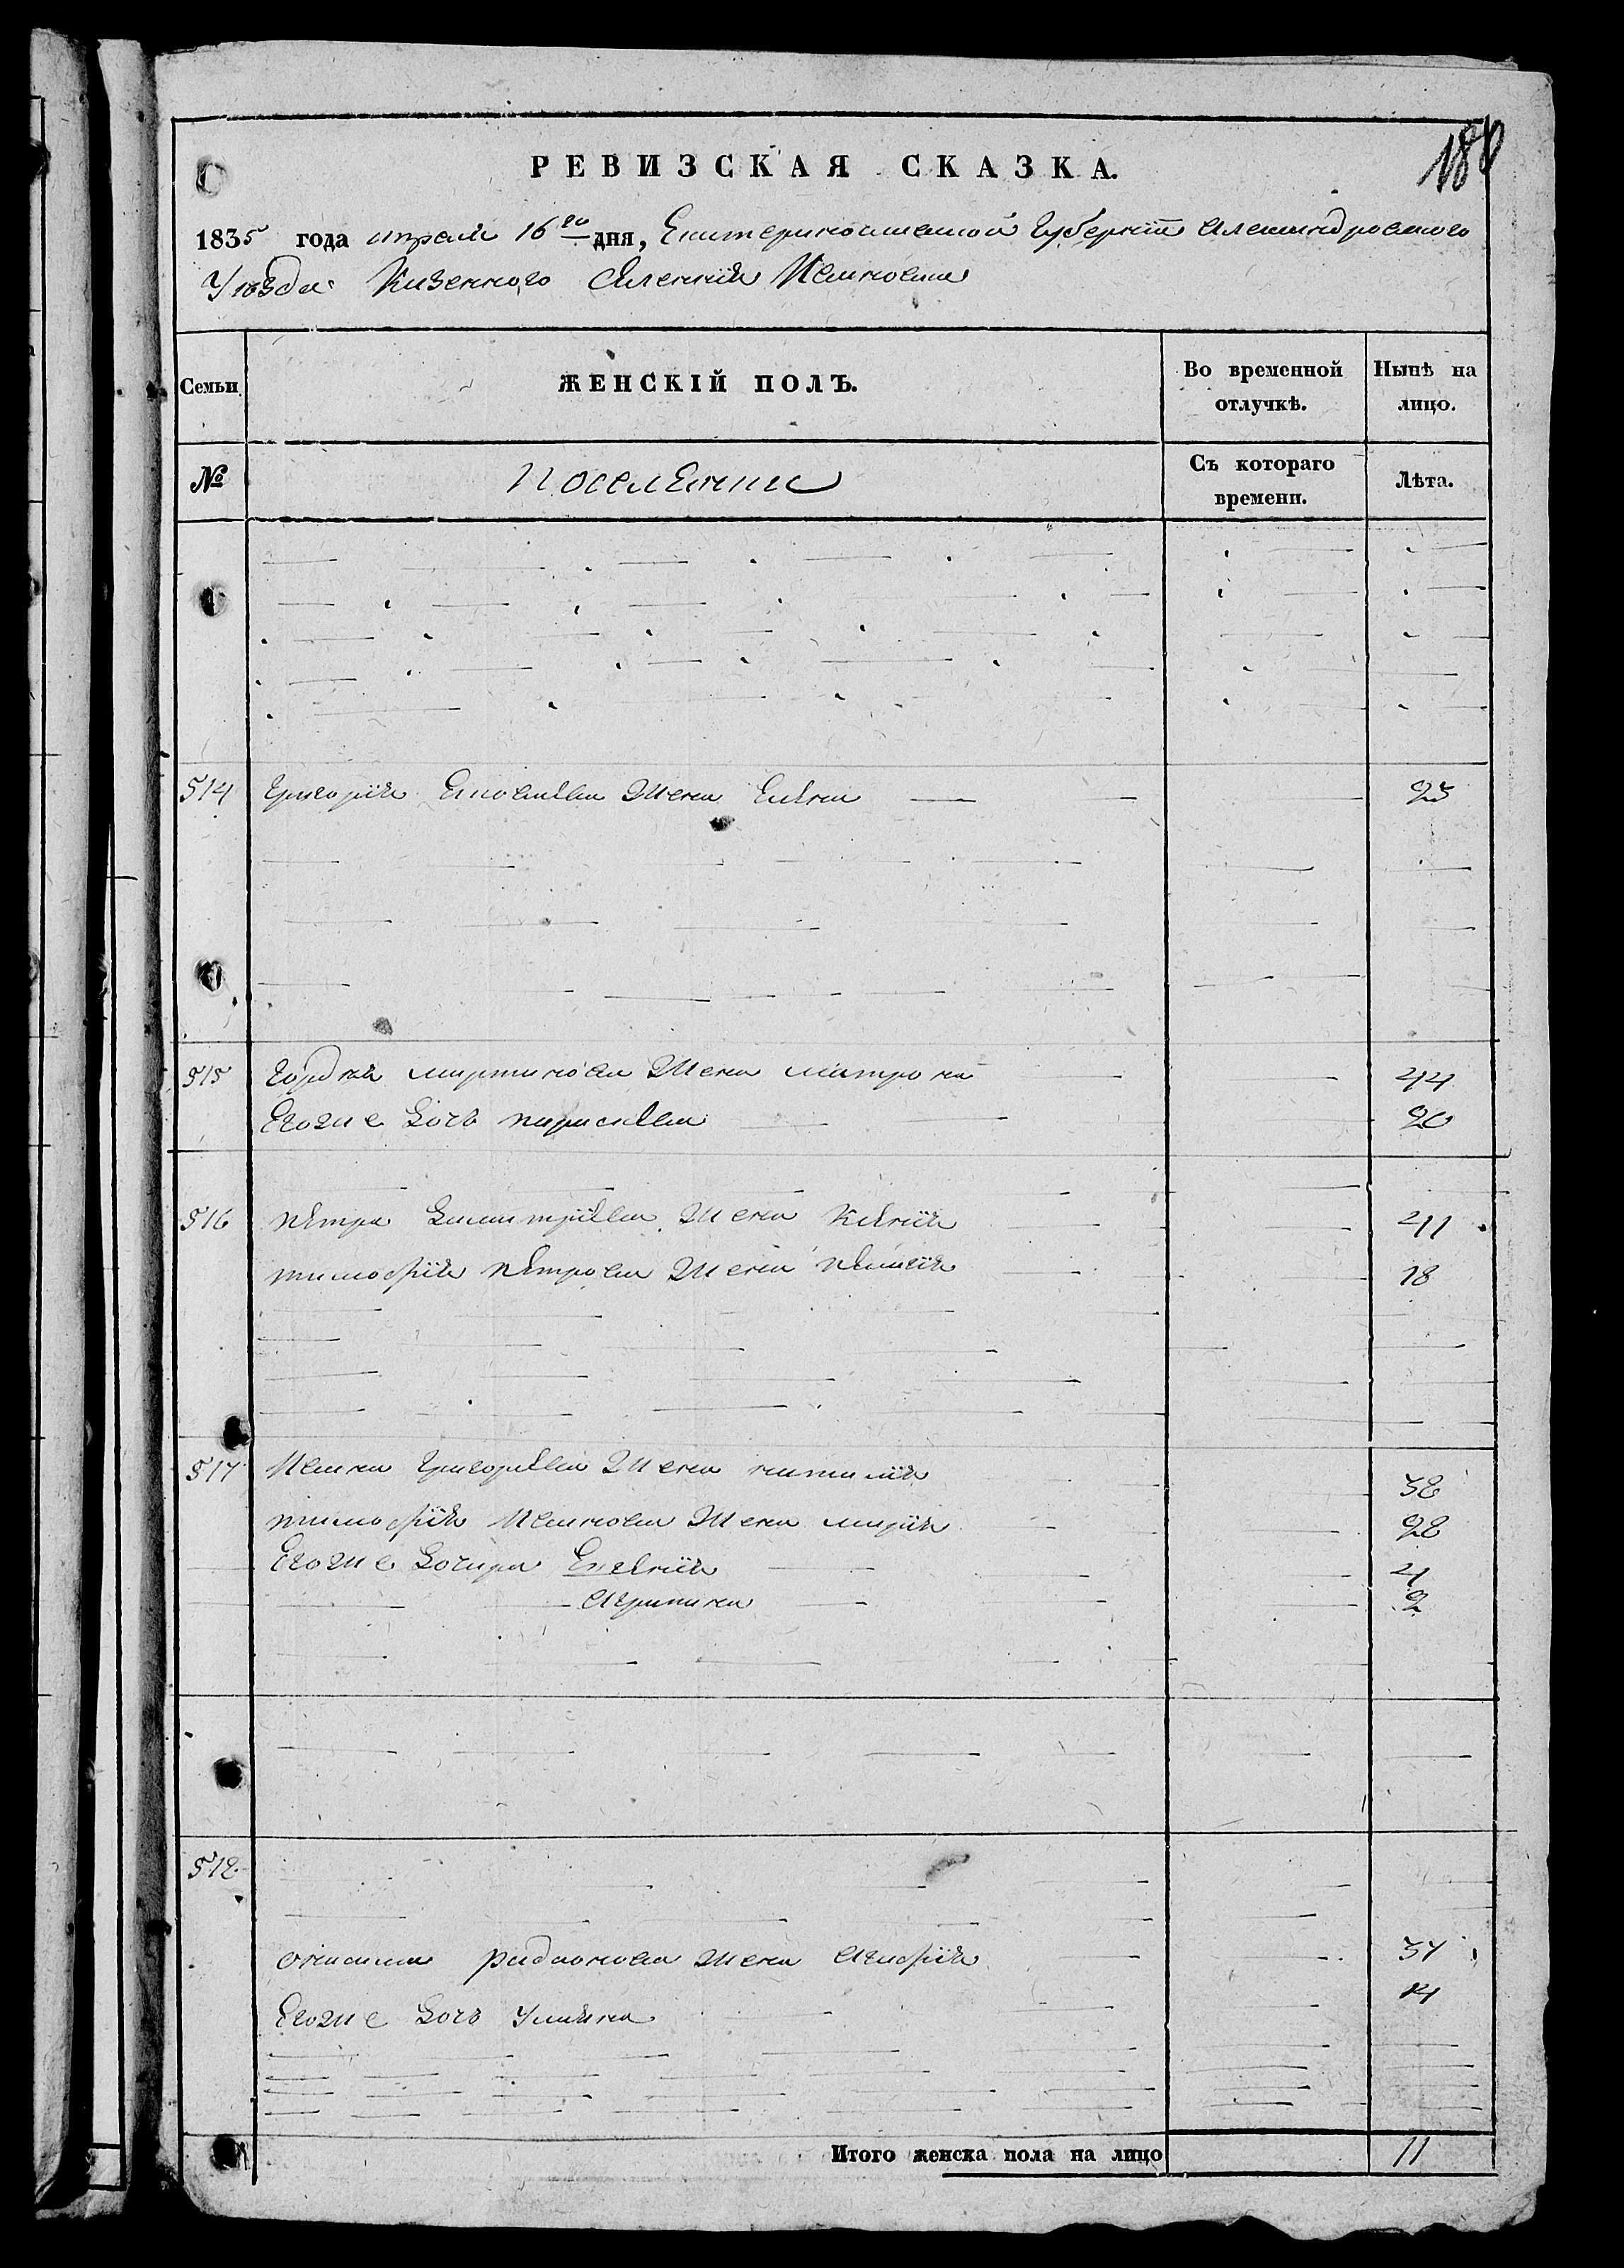 РЕВИЗСКАЯ СКАЗКА.
1835 года апреля 16го дня, Екатеринославской Губернiи Александровского
Уезда Казенного Селенiя Ивановки
Семьи
ЖЕНСКІЙ ПОЛЪ.
Во временной отлучкѣ.
Нынѣ на лицо.
№
Поселяни
Съ котораго времени.
Лѣта.
514 Григорiя жена Елена 25
515 Гордея Мартинова жена Матрона 44
Егоже дочь Параскева 20
516 Петра Димитрiева жена Ксенiя 41
Тимофiя Петрова жена 18
517 Ивана Григорiева жена Наталiя 38
Тимофiя Иванова жена Марiя 28
Егоже дочери Евгенiя 4
Агрипина 2
518
Радионова жена Агафiя 37
Егоже дочь Улияна 14
Итого женска пола на лицо 11